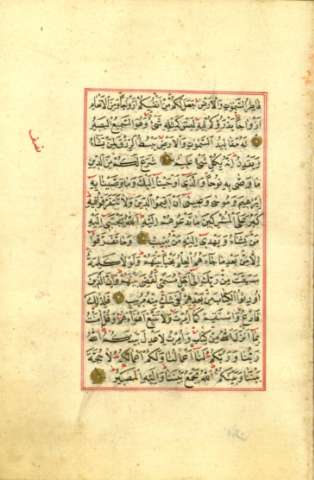 فَاطِرُ السَّمٰوَاتِ وَالْاَرْضِ جَعَلَ لَكُمْ مِنْ اَنْفُسِكُمْ اَزْوَاجًا وَمِنَ الْاَنْعَامِ
اَزْوَاجًا يَذْرَؤُكُمْ فِيهِ لَيْسَ كَمِثْلِهِ شَىْءٌ وَهُوَ السَّمِيعُ الْبَصِيرُ
لَهُ مَقَالِيدُ السَّمٰوَاتِ وَالْاَرْضِ يَبْسُطُ الرِّزْقَ لِمَنْ يَشَاءُ
وَيَقْدِرُ اِنَّهُ بِكُلِّ شَىْءٍ عَلِيمٌ شَرَعَ لَكُمْ مِنَ الدِّينِ
مَا وَصّٰى بِهِ نُوحًا وَالَّذِى اَوْحَيْنَا اِلَيْكَ وَمَا وَصَّيْنَا بِهِ
اِبْرٰهِيمَ وَمُوسٰى وَعِيسٰى اَنْ اَقِيمُوا الدِّينَ وَلَا تَتَفَرَّقُوا فِيهِ
كَبُرَ عَلَى الْمُشْرِكِينَ مَا تَدْعُوهُمْ اِلَيْهِ اَللّٰهُ يَجْتَبِى اِلَيْهِ
مَنْ يَشَاءُ وَيَهْدِى اِلَيْهِ مَنْ يُنِيبُ وَمَا تَفَرَّقُوا
اِلَّا مِنْ بَعْدِ مَا جَاءَهُمُ الْعِلْمُ بَغْيًا بَيْنَهُمْ وَلَوْلَا كَلِمَةٌ
سَبَقَتْ مِنْ رَبِّكَ اِلٰى اَجَلٍ مُسَمًّى لَقُضِىَ بَيْنَهُمْ وَاِنَّ الَّذِينَ
اُورِثُوا الْكِتَابَ مِنْ بَعْدِهِمْ لَفِى شَكٍّ مِنْهُ مُرِيبٍ فَلِذٰلِكَ
فَادْعُ وَاسْتَقِمْ كَمَا اُمِرْتَ وَلَا تَتَّبِعْ اَهْوَاءَهُمْ وَقُلْ اٰمَنْتُ
بِمَا اَنْزَلَ اللّٰهُ مِنْ كِتَابٍ وَاُمِرْتُ لِاَعْدِلَ بَيْنَكُمُ اَللّٰهُ
رَبُّنَا وَرَبُّكُمْ لَنَا اَعْمَالُنَا وَلَكُمْ اَعْمَالُكُمْ لَا حُجَّةَ
بَيْنَنَا وَبَيْنَكُمُ اَللّٰهُ يَجْمَعُ بَيْنَنَا وَاِلَيْهِ الْمَصِيرُ